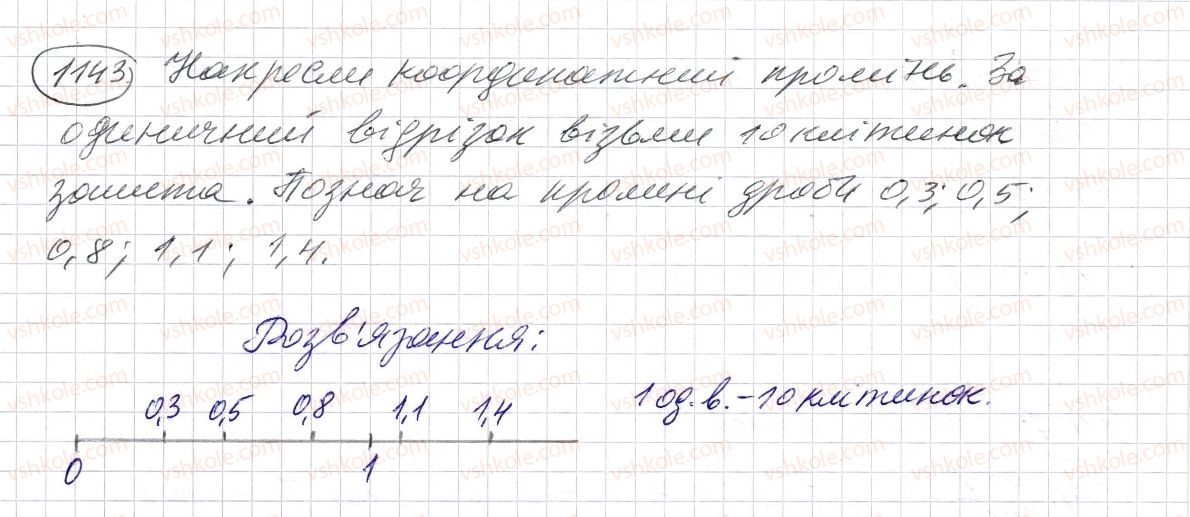 1143. Накресли координатний промінь. За
одиничний відрізок візьми 10 клітинок
зошита. Познач на промені дроби 0,3; 0,5;
0,8; 1,1; 1,4.
Розв'язання:
0,3 0,5 0,8 1,1 1,4
1 од. в. – 10 клітинок.
0 1